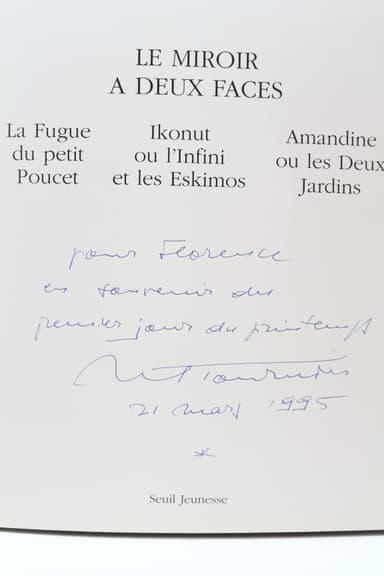 LE MIROIR
A DEUX FACES
La Fugue
du petit
Poucet
Ikonut
ou l'Infini
et les Eskimos
Amandine
ou les Deux
Jardins
pour Florence
en souvenir du
premier jour du printemps
M Tournier
21 mars 1995
*
Seuil Jeunesse